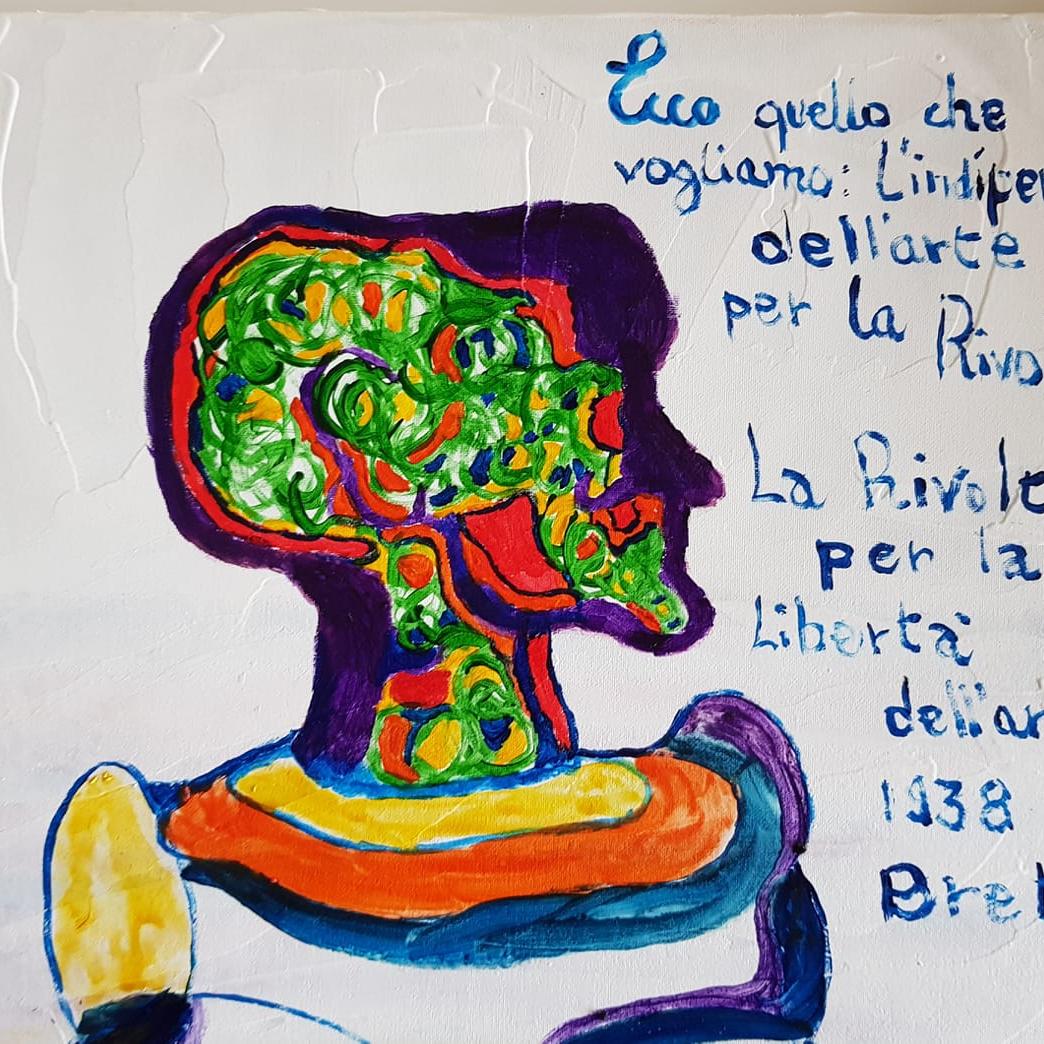 Ecco quello che
vogliamo: L'indipen
dell'arte
per la Rivo
La Rivolu
per la
Libertà
dell'ar
1938
Bret